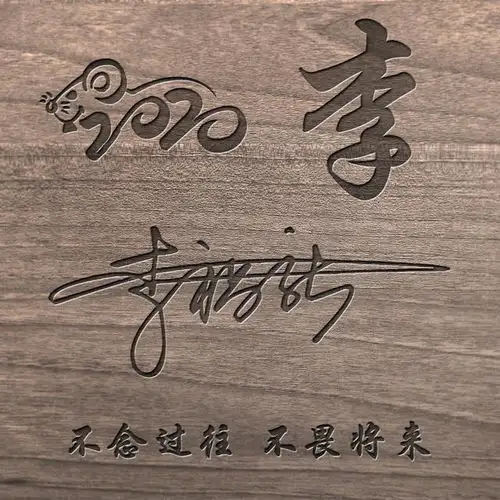 2020 李
不念过往 不畏将来